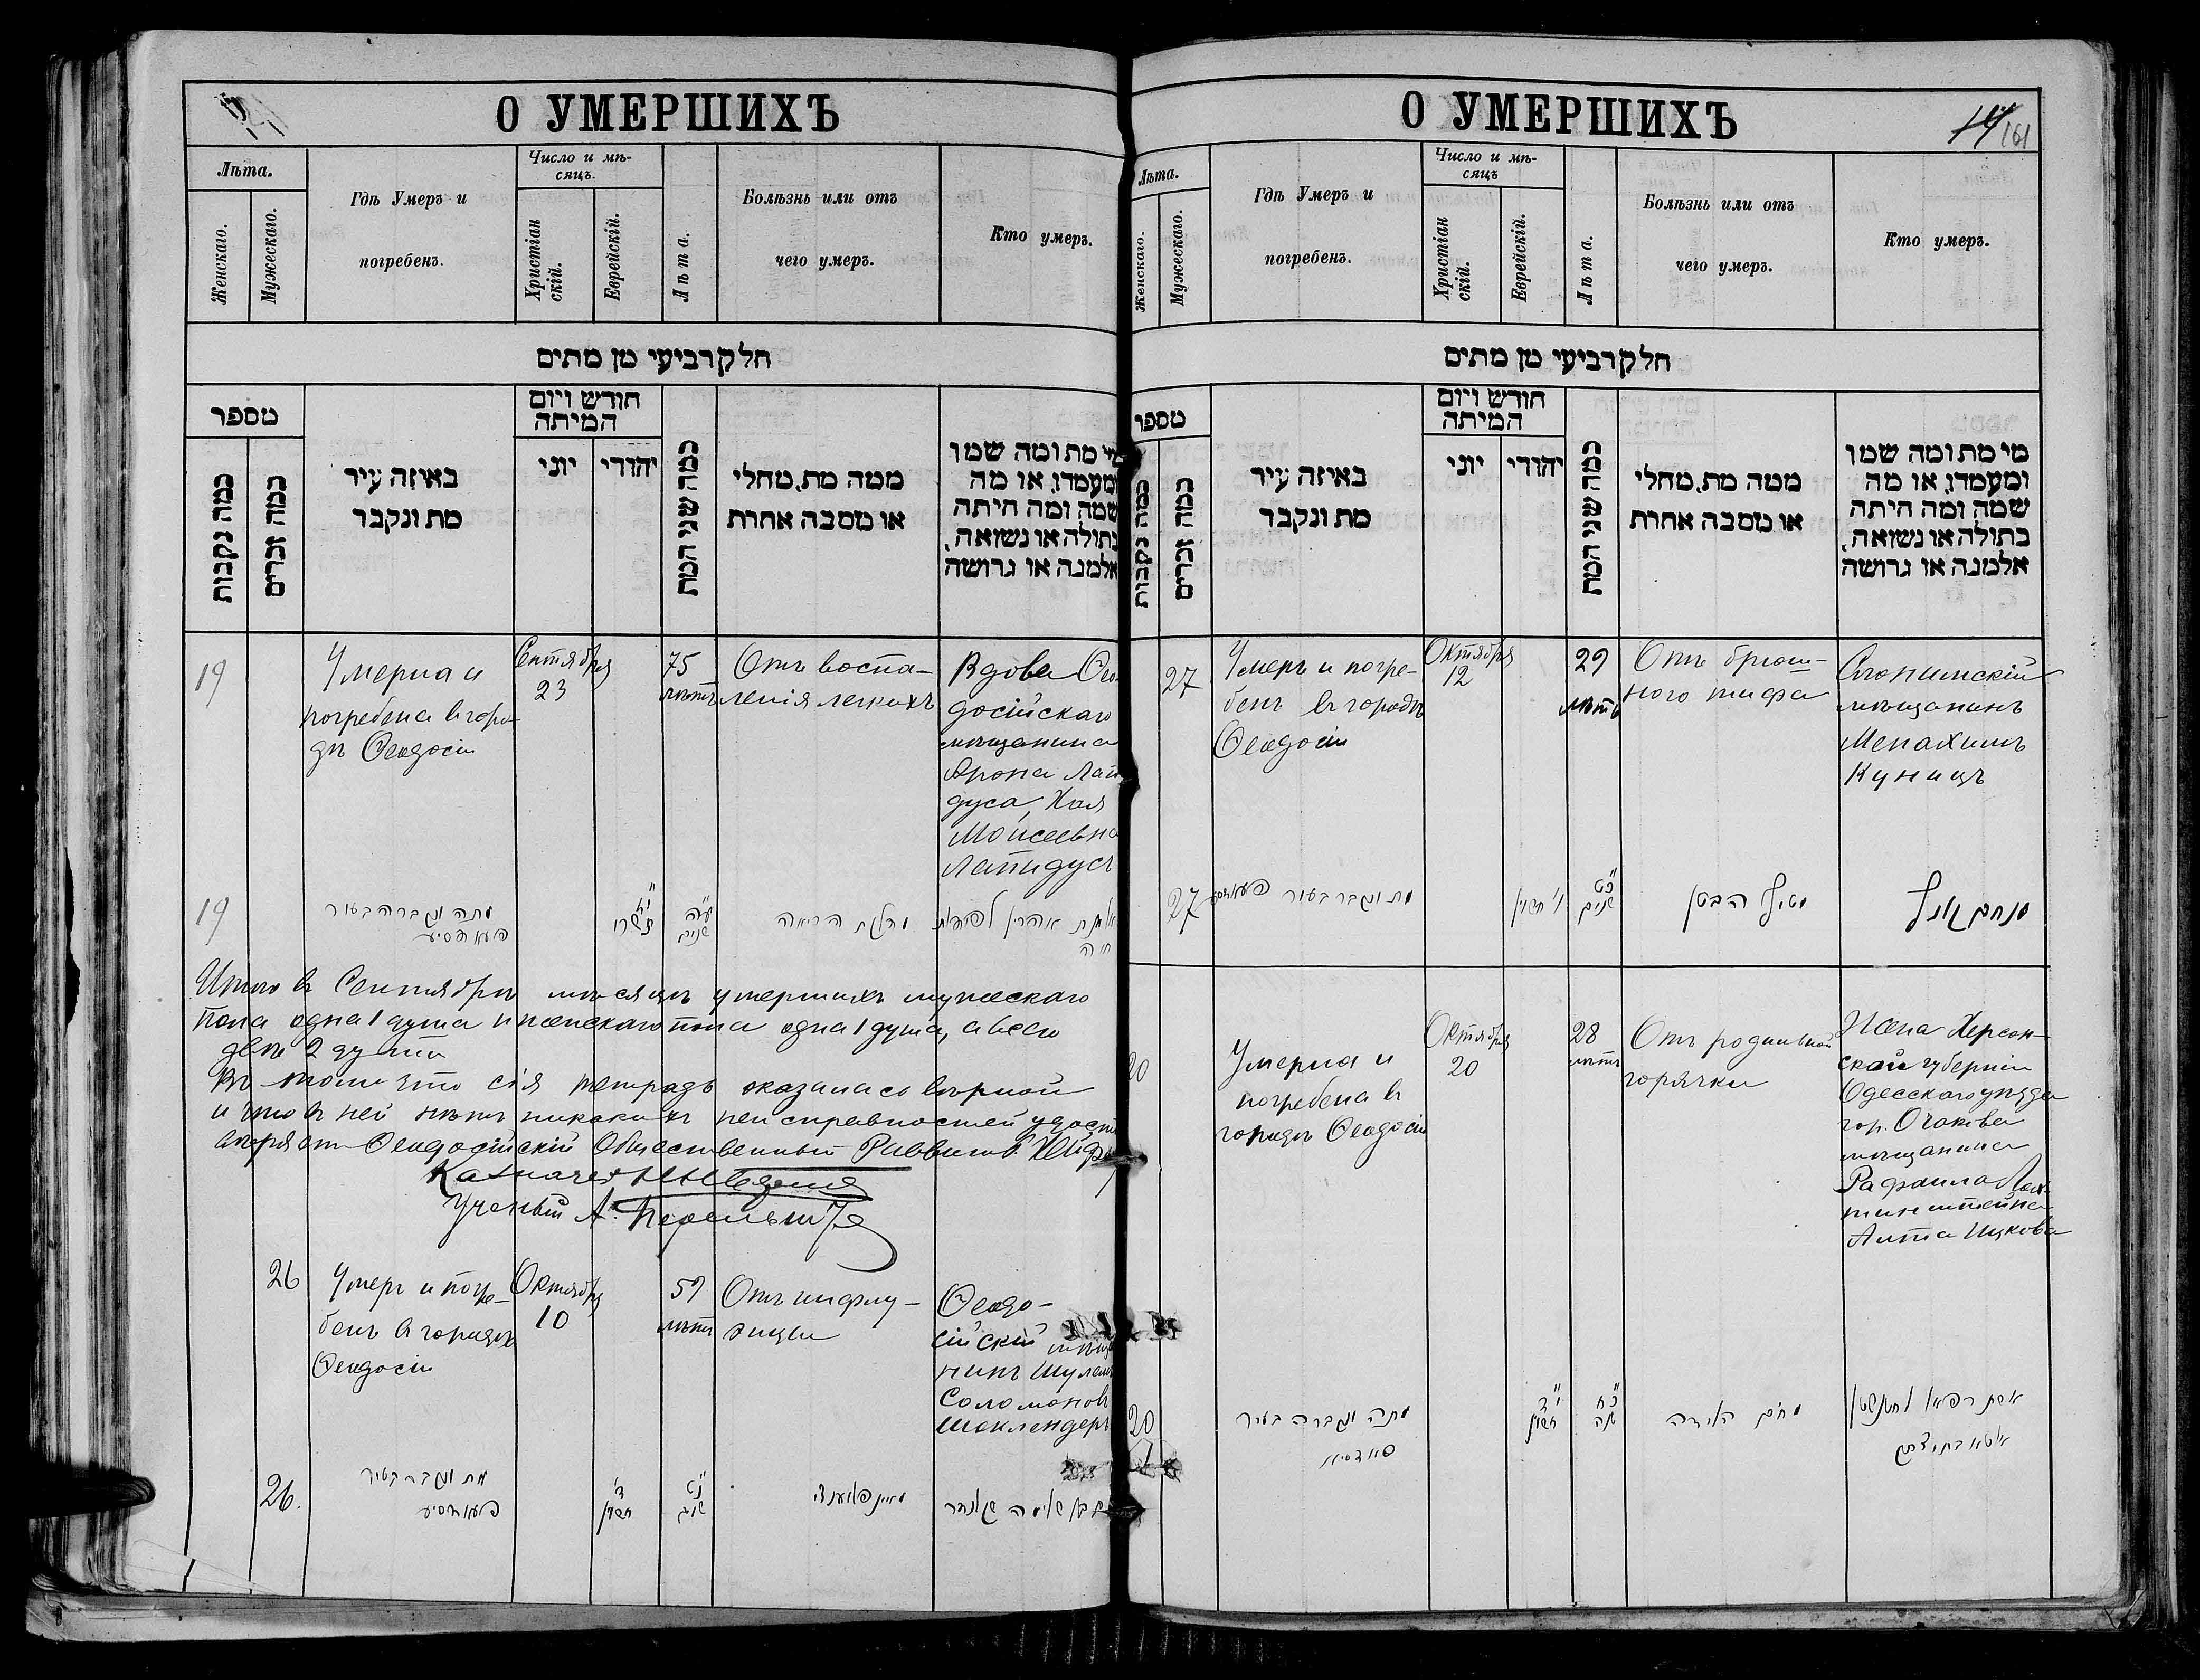 О УМЕРШИХЪ
Лѣта.
Женскаго.
Мужескаго.
Гдѣ Умеръ и
погребенъ.
Число и мѣ-
сяцъ.
Христіан
скій.
Еврейскій.
Лѣта.
Болѣзнь или отъ
чего умеръ.
Кто умеръ.
חלק רביעי מן מתים
מספר
כמה נקבות
כמה זכרים
באיזה עיר
מת ונקבר
חודש ויום
המיתה
יוני
יהודי
כמה שני המת
ממה מת, מחלי
או מסבה אחרת
מי מת ומה שמו
ומעמדו, או מה
שמה ומה היתה
בתולה או נשואה,
אלמנה או גרושה
19
Умерла и
погребена в горо-
дѣ Ѳеодосіи
Сентября
23
75
лѣтъ
Отъ воспа-
ленія легкихъ
Вдова Ѳео-
досійскаго
мѣщанина
Арона Лапи
дуса, Хая
Моисеевна
Лапидусъ
19
מתה ונקברה בעיר
פעאדאסיע
תשרי
ע״ה
שנים
מדלקת הריאה
אלמנת אהרן לפידות
חיה
Итого в Сентябрѣ мѣсяцѣ умершихъ мужескаго
пола одна 1 душа и женскаго пола одна 1 душа, а всего
двѣ 2 души
Въ томъ что сія тетрадь оказалась вѣрной
и что в ней нѣтъ никакихъ неисправностей удосто
вѣряетъ Ѳеодосійскій Общественный Раввинъ
Казначей
Ученый А.
26
Умеръ и погре-
бенъ в городѣ
Ѳеодосіи
Октября
10
59
лѣтъ
Отъ инфлу-
энцы
Ѳеодо-
сійскій мѣща
нинъ Шулем
Соломоновъ
Шоклендеръ
26.
מת ונקבר בעיר
פעאדאסיע
ד׳
חשון
נ״ט
שנים
מאינפלוענצי
О УМЕРШИХЪ
161
Лѣта.
Женскаго.
Мужескаго.
Гдѣ Умеръ и
погребенъ.
Число и мѣ-
сяцъ
Христіан
скій.
Еврейскій.
Лѣта.
Болѣзнь или отъ
чего умеръ.
Кто умеръ.
חלק רביעי מן מתים
מספר
כמה נקבות
כמה זכרים
באיזה עיר
מת ונקבר
חודש ויום
המיתה
יוני
יהודי
כמה שני המת
ממה מת, מחלי
או מסבה אחרת
מי מת ומה שמו
ומעמדו, או מה
שמה ומה היתה
בתולה או נשואה,
אלמנה או גרושה
27
Умеръ и погре-
бенъ в городѣ
Ѳеодосіи
Октября
12
29
лѣтъ
Отъ брюш-
ного тифа
Слонимскій
мѣщанинъ
Менахимъ
Куницъ
27
מת ונקבר בעיר
ו׳ חשון
כ״ט
שנים
הבטן
מנחם
20
Умерла и
погребена в
городѣ Ѳеодосіи
Октября
20
28
лѣтъ
Отъ родильной
горячки
Жена Херсон-
ской губерніи
Одесскаго уѣзда
гор. Очакова
мѣщанина
Рафаила Лех-
тинштейна
Ицкова
20
מתה ונקברה בעיר
י״ד
חשון
כ״ח
שנה
מחום הלידה
אשת רפאל
בת יצחק